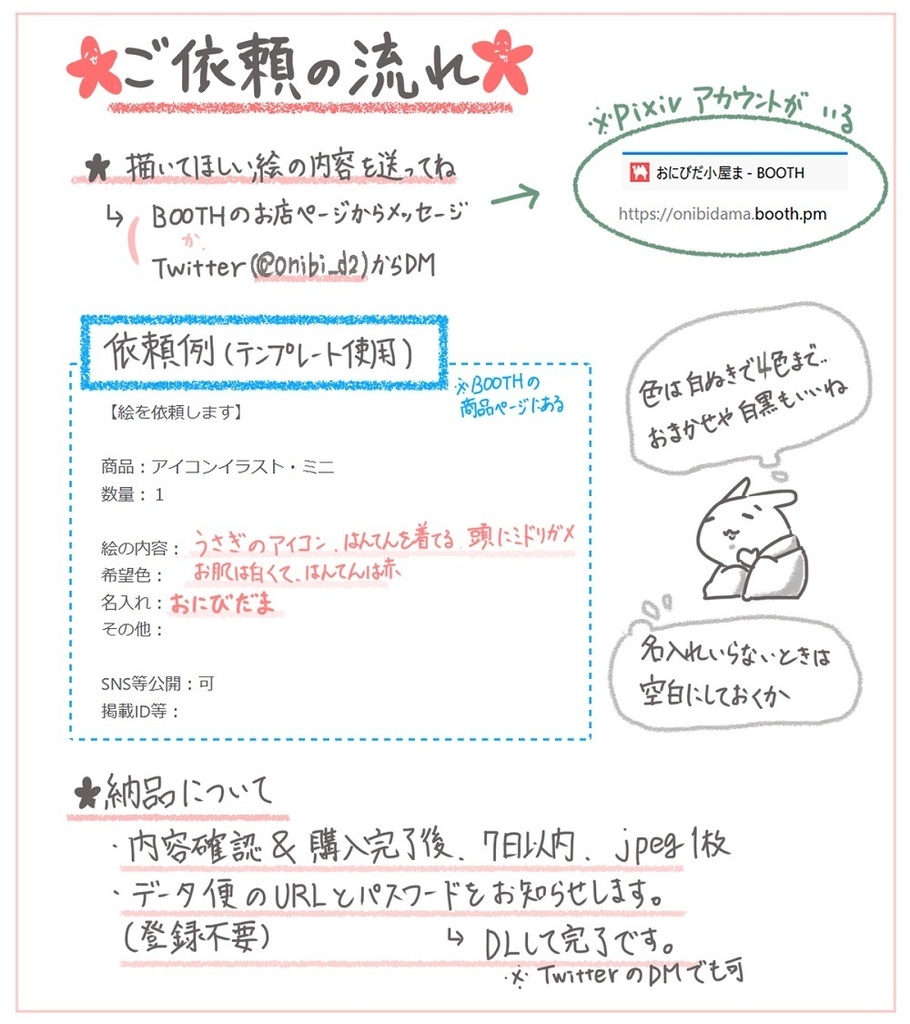 ご依頼の流れ
※pixiv アカウントが いる
★ 描いてほしい絵の内容を送ってね
おにびだ小屋ま - BOOTH
https://onibidama.booth.pm
↳ BOOTHのお店ページからメッセージ
か
Twitter(@onibi_d2)からDM
依頼例(テンプレート使用)
※BOOTHの
商品ページにある
【絵を依頼します】
商品：アイコンイラスト・ミニ
数量：１
絵の内容：うさぎのアイコン、はんてんを着てる 頭にミドリガメ
希望色：お肌は白くて、はんてんは赤
名入れ：おにびだま
その他：
SNS等公開：可
掲載ID等：
色は白ぬきで4色まで..
おまかせや白黒もいいね
名入れいらないときは
空白にしておくか
★納品について
・内容確認＆購入完了後、7日以内、jpeg1枚
・データ便のURLとパスワードをお知らせします。
(登録不要)
↳ DLして完了です。
※TwitterのDMでも可